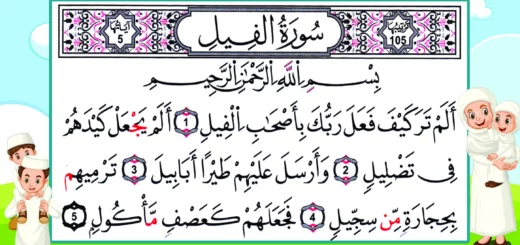 آيَاتُهَا 5 سُورَةُ الْفِيلِ تَرْتِيبُهَا 105
بِسْمِ اللَّهِ الرَّحْمَٰنِ الرَّحِيمِ
أَلَمْ تَرَ كَيْفَ فَعَلَ رَبُّكَ بِأَصْحَابِ الْفِيلِ 1 أَلَمْ يَجْعَلْ كَيْدَهُمْ
فِي تَضْلِيلٍ 2 وَأَرْسَلَ عَلَيْهِمْ طَيْرًا أَبَابِيلَ 3 تَرْمِيهِم
بِحِجَارَةٍ مِّن سِجِّيلٍ 4 فَجَعَلَهُمْ كَعَصْفٍ مَّأْكُولٍ 5